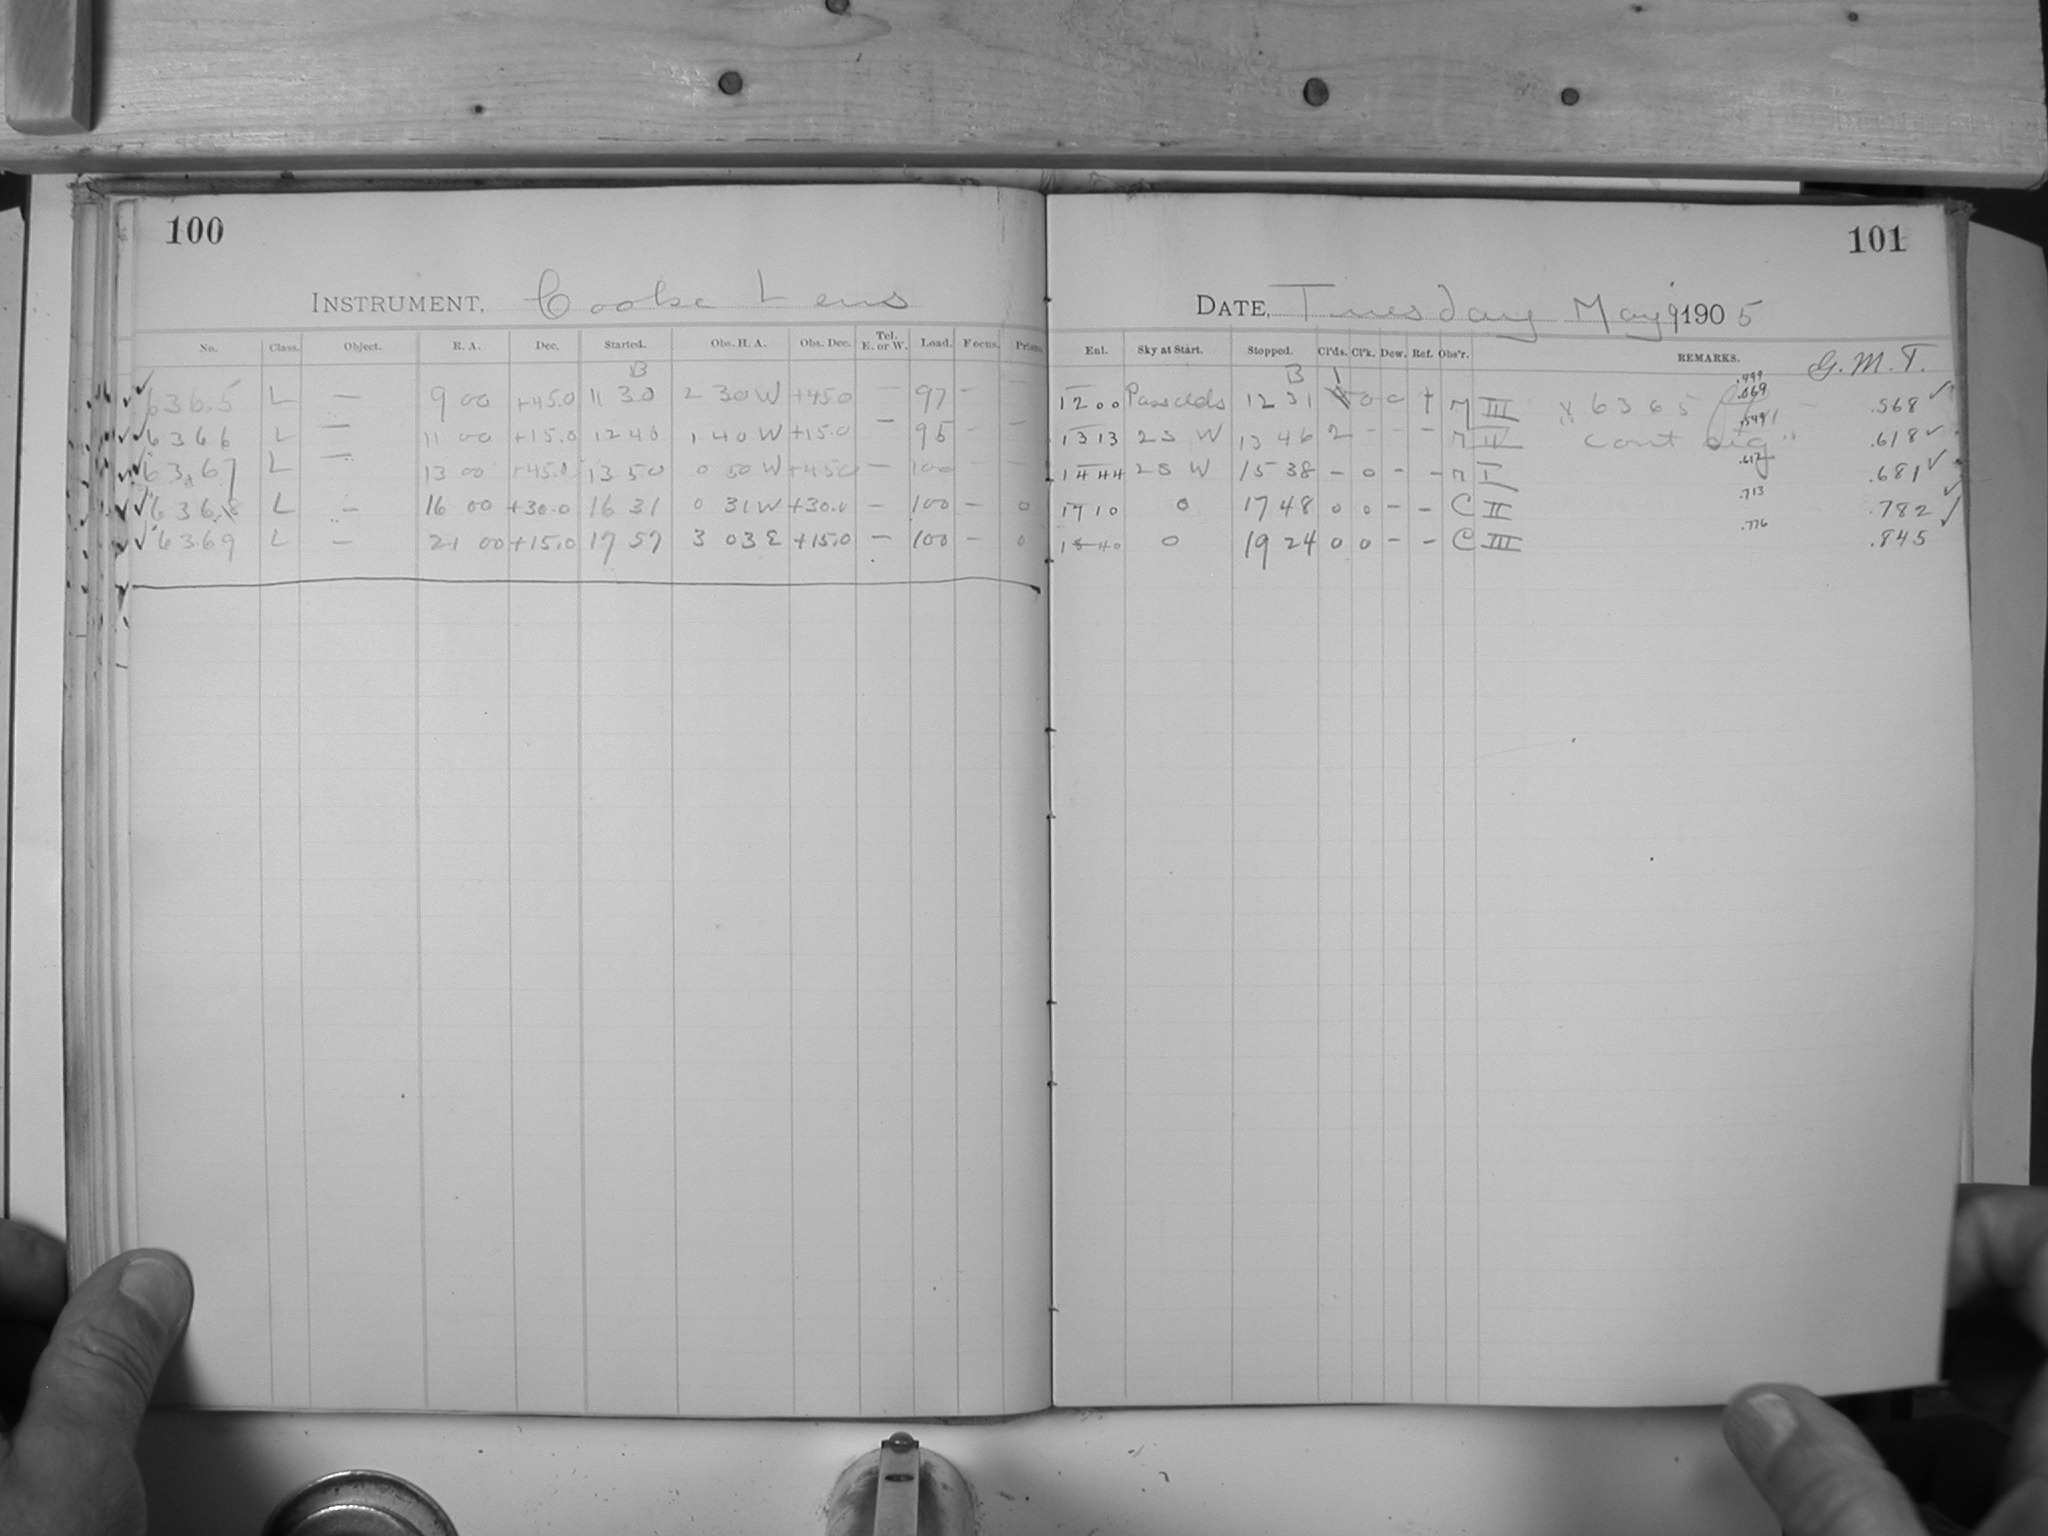 100
INSTRUMENT, Cooke Lens
No. Class. Object. R. A. Dec. Started. Obs. H. A. Obs. Dec. Tel. E. or W. Load. Focus. Prism.
B
6365 L — 9 00 +45.0 11 30 2 30 W +45.0 — 97 — —
6366 L — 11 00 +15.0 12 40 1 40 W +15.0 — 95 — —
6367 L — 13 00 +45.0 13 50 0 50 W +45.0 — 100 — —
6368 L — 16 00 +30.0 16 31 0 31 W +30.0 — 100 — 0
6369 L — 21 00 +15.0 17 57 3 03 E +15.0 — 100 — 0
101
DATE, Tuesday May 9 1905
Enl. Sky at Start. Stopped. Cl'ds. Cl'k. Dew. Ref. Obs'r. REMARKS. G. M. T.
B 1 .499
12 00 Pass clds 12 31 0 III 6365 .569 .568 ✓
13 13 2 S W 13 46 2 - - - cont .549 .618 ✓
14 44 2 S W 15 38 - 0 - - I .612 .681 ✓
17 10 0 17 48 0 0 - - C II .713 .782 ✓
18 40 0 19 24 0 0 - - C III .776 .845